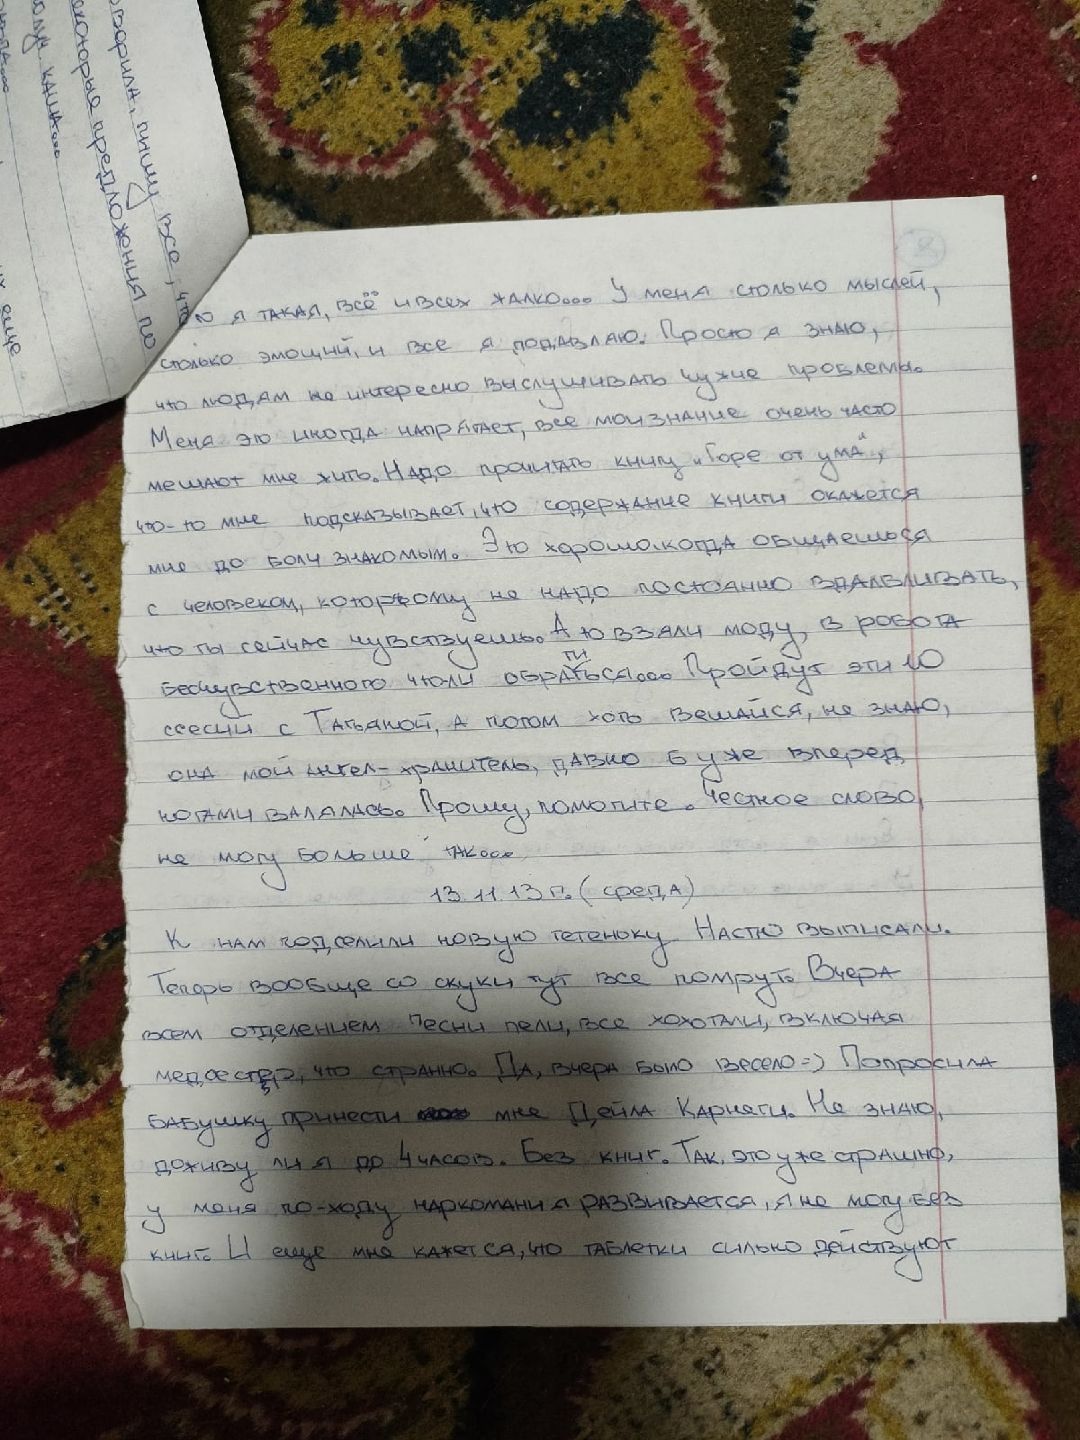 оворила, пишу все, что
екоторые предложения по
ному каша...
их еще
8
то я такая, всё и всех жалко... У меня столько мыслей,
столько эмоций, и все я подавляю. Просто я знаю,
что людям не интересно выслушивать чужие проблемы.
Меня это иногда напрягает, все мои знание очень часто
мешают мне жить. Надо прочитать книгу "Горе от ума",
что-то мне подсказывает, что содержание книги окажется
мне до боли знакомым. Это хорошо, когда общаешься
с человеком, которому не надо постоянно вдалбливать,
что ты сейчас чувствуешь. А то взяли моду, в робота
бесчувственного чтоли обратиться... Пройдут эти 10
ссесий с Татьяной, а потом хоть вешайся, не знаю,
она мой ангел-хранитель, давно б уже вперед
ногами валялась. Прошу, помогите. Честное слово,
не могу больше так...
13.11.13г. (среда)
К нам подселили новую тетеньку Настю выписали.
Теперь вообще со скуки тут все помрут. Вчера
всем отделением песни пели, все хохотали, включая
медсестер, что странно. Да, вчера было весело=) Попросила
бабушку принести мне Дейла Карнеги. Не знаю,
доживу ли я до 4 часов. Без книг. Так, это уже страшно,
у меня по-ходу наркомания развивается, я не могу без
книг. И еще мне кажется, что таблетки сильно действуют